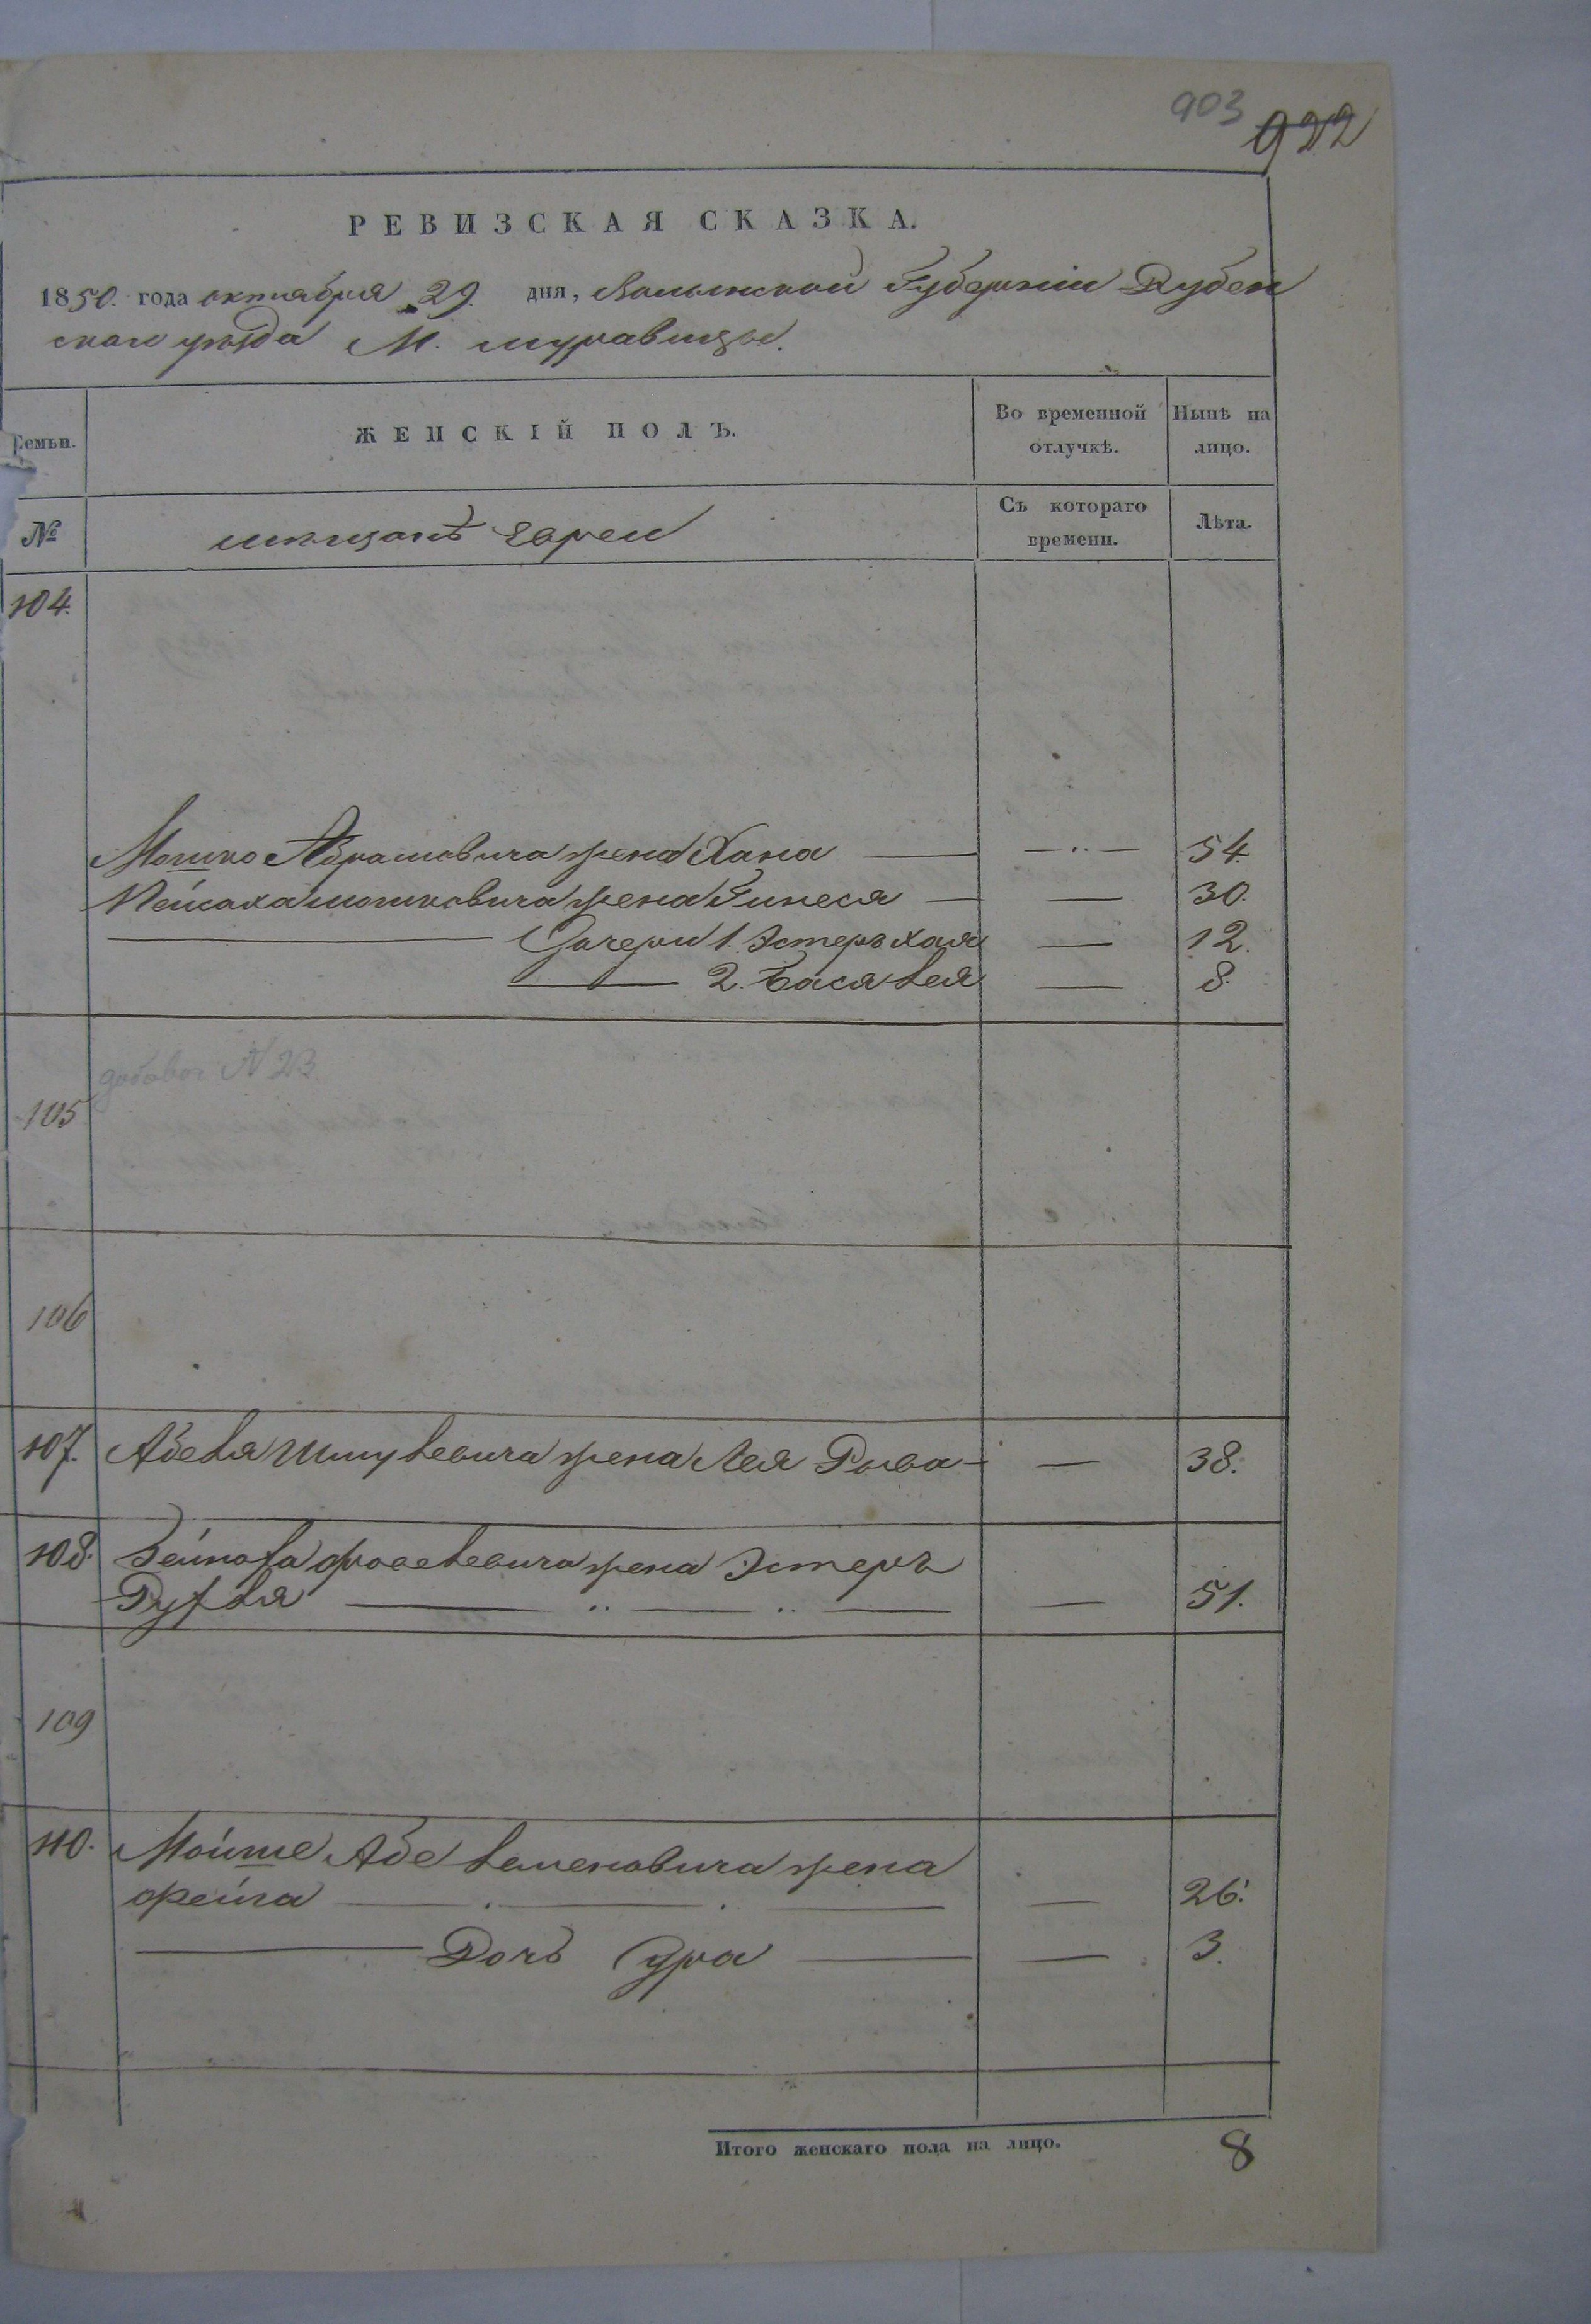 903
922
РЕВИЗСКАЯ СКАЗКА.
1850. года октября 29. дня, Волынской Губерніи Дубен
скаго уѣзда М. муравицы.
Семьи.
ЖЕНСКІЙ ПОЛЪ.
Во временной отлучкѣ.
Нынѣ на лицо.
№
мѣщанѣ Евреи
Съ котораго времени.
Лѣта.
104.
Мошко Абрамовича жена Хана — — 54.
Пейсаха мошковича жена Гинеся — — 30.
Дочери 1. Эстеръ хая — 12.
2. Бася лея — 8.
105
N 23.
106
107. Абеля Шмулевича жена Лея Рыва — — 38.
108. Зейлока фроелевича жена Эстеръ
Рухля — — 51.
109
110. Мойше Абе Лемековича жена
фейга — — 26.
Дочь Сура — — 3.
Итого женскаго пола на лицо. 8